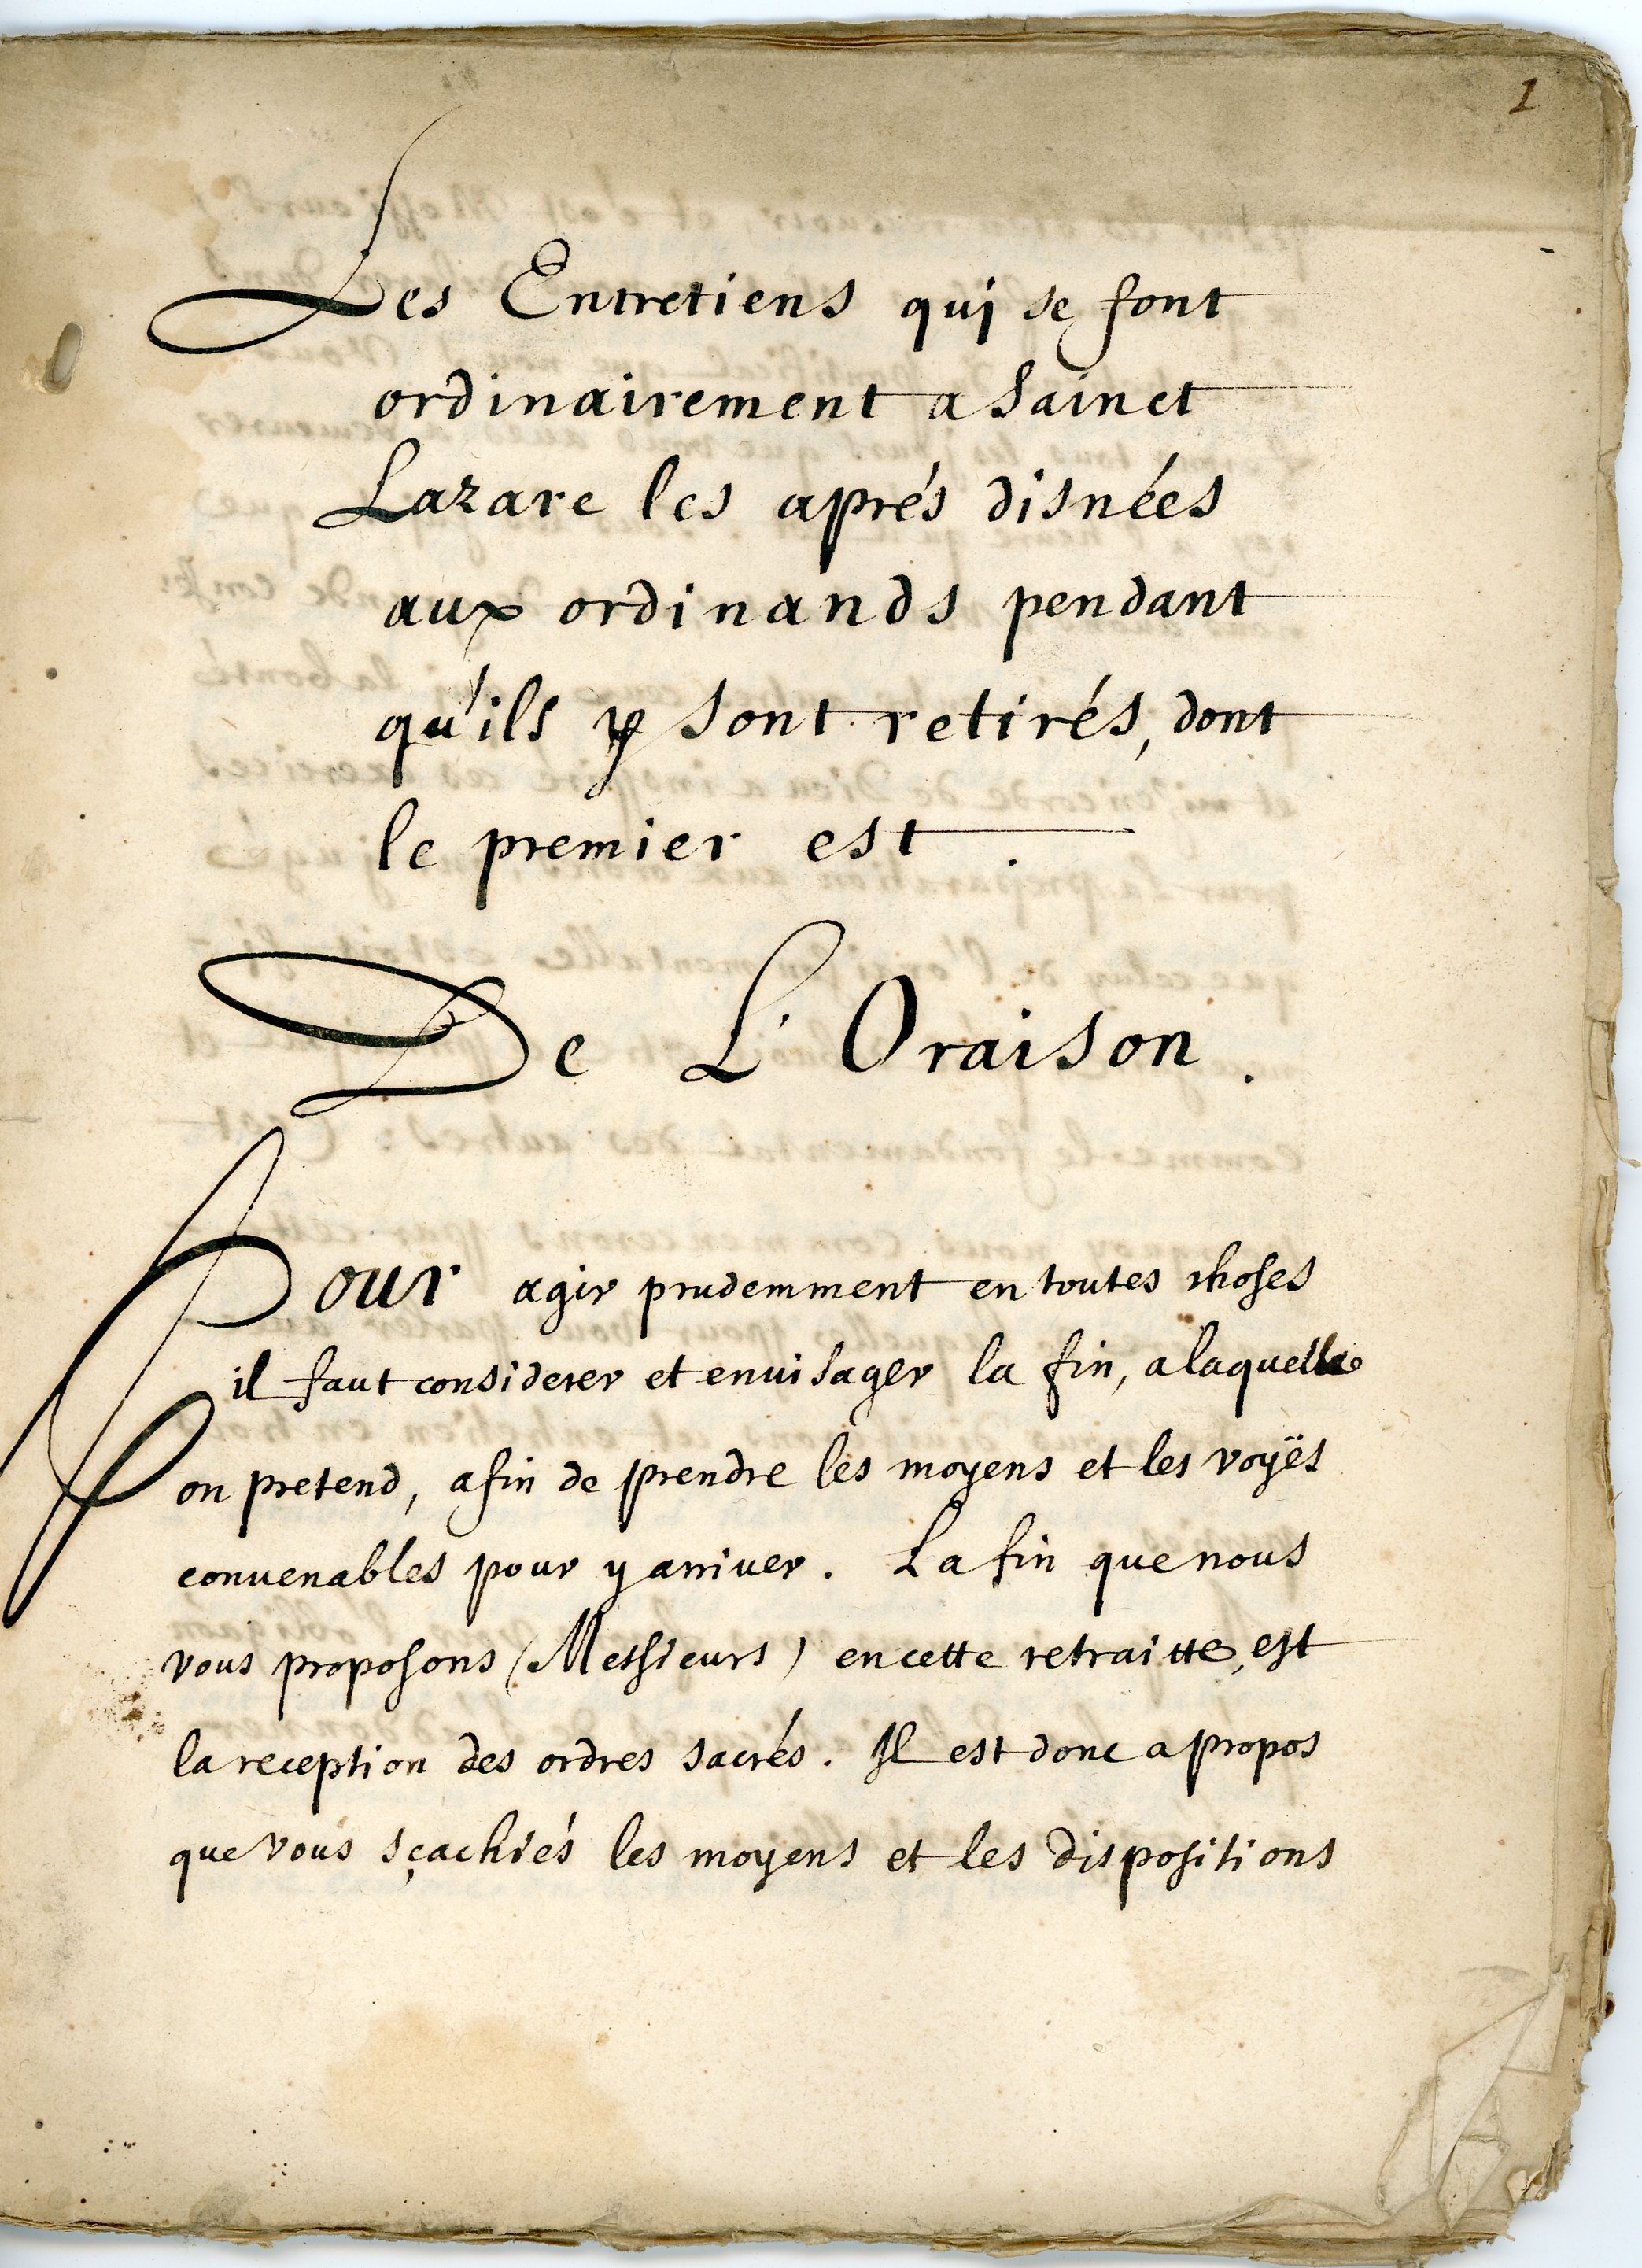 1
Les Entretiens qui se font
ordinairement a Sainct
Lazare les aprés disnées
aux ordinands pendant
qu'ils y sont retirés, dont
le premier est .
De L'Oraison .
Pour agir prudemment en toutes choses
il faut considerer et enuisager la fin, a laquelle
on pretend, afin de prendre les moyens et les voÿes
conuenables pour y arriuer . La fin que nous
vous proposons (Messieurs) en cette retraitte, est
la reception des ordres sacrés . Il est donc a propos
que vous sçachiés les moyens et les dispositions